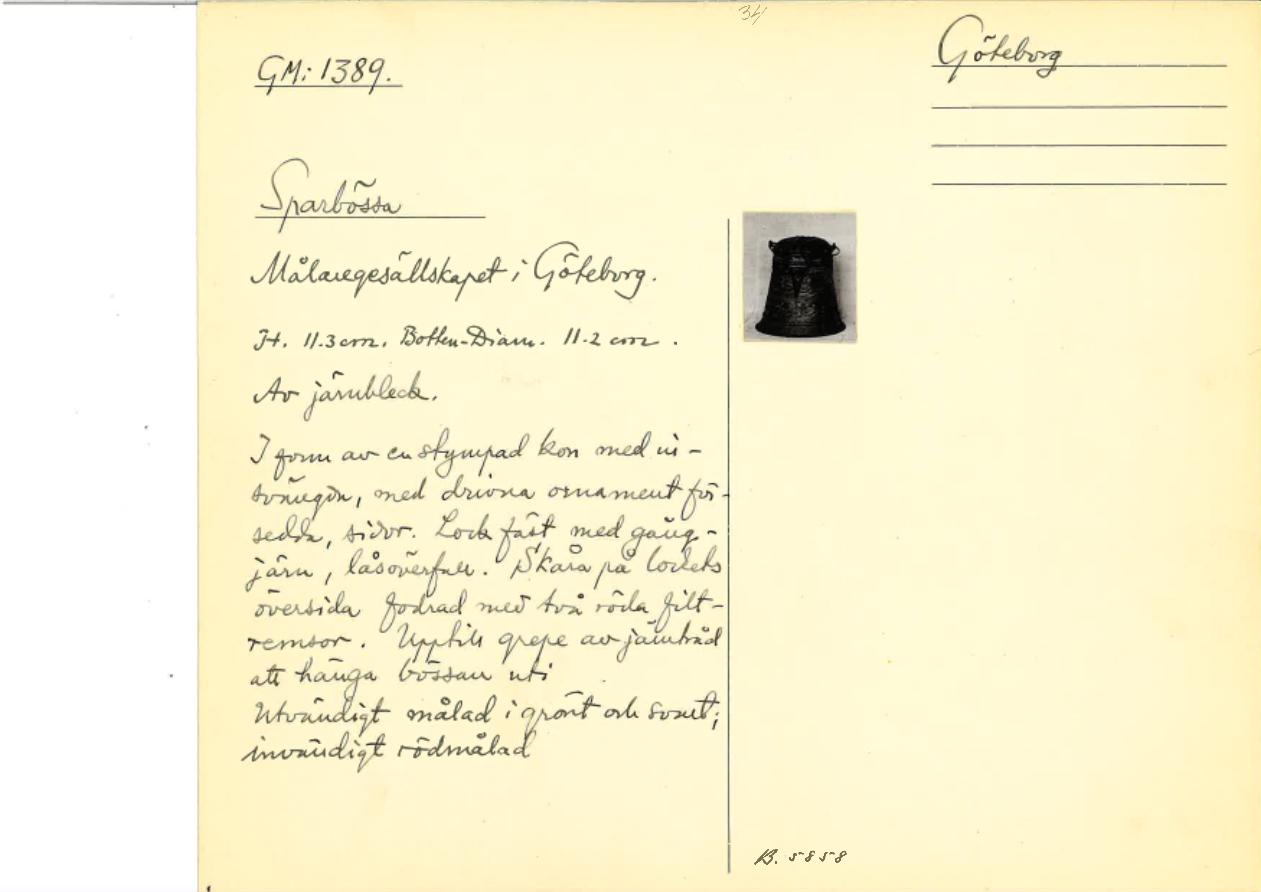 34
GM: 1389.
Göteborg
Sparbössa
Målaregesällskapet i Göteborg.
H. 11.3 cm. Botten-Diam. 11.2 cm.
Av järnbleck.
I form av en stympad kon med in-
svängda, med drivna ornament för-
sedda, sidor. Lock fäst med gång-
järn, låsöverfall. Skåra på lockets
översida fodrad med två röda filt-
remsor. Upptill grepe av järntråd
att hänga bössan uti
Utvändigt målad i grönt och svart;
invändigt rödmålad
B. 5858